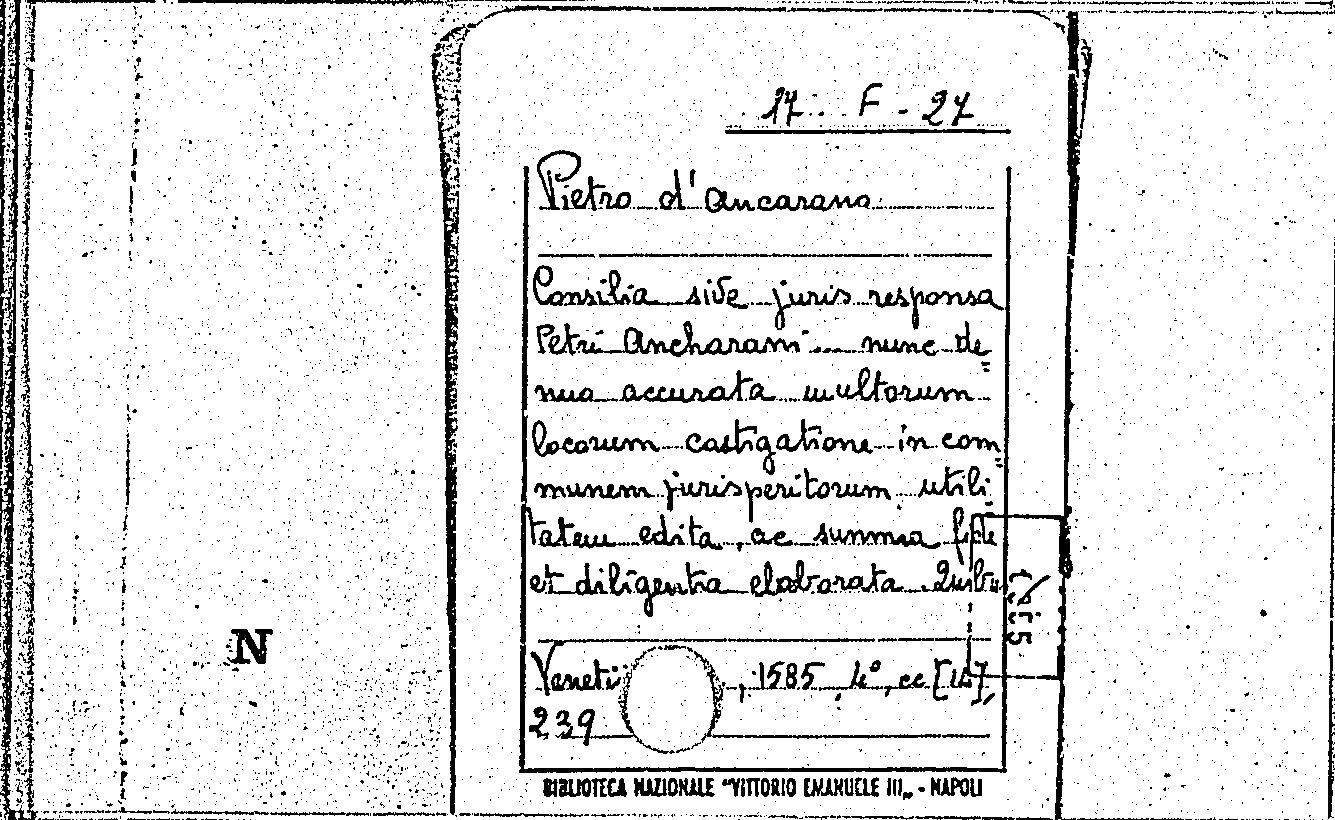 17. F - 27
Pietro d'Ancarano
Consilia sive juris responsa
Petri Ancharani ... nunc de=
nuo accurata multorum
locorum castigatione in com=
munem jurisperitorum utili=
tatem edita, ac summa fide
et diligentia elaborata Quibu
N
Veneti , 1585, 4°, cc
239
BIBLIOTECA NAZIONALE "VITTORIO EMANUELE III„ - NAPOLI